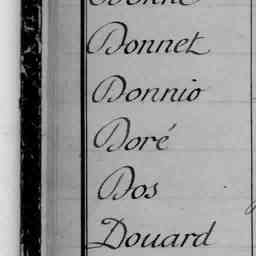 Donnet
Donnio
Doré
Dos
Douard